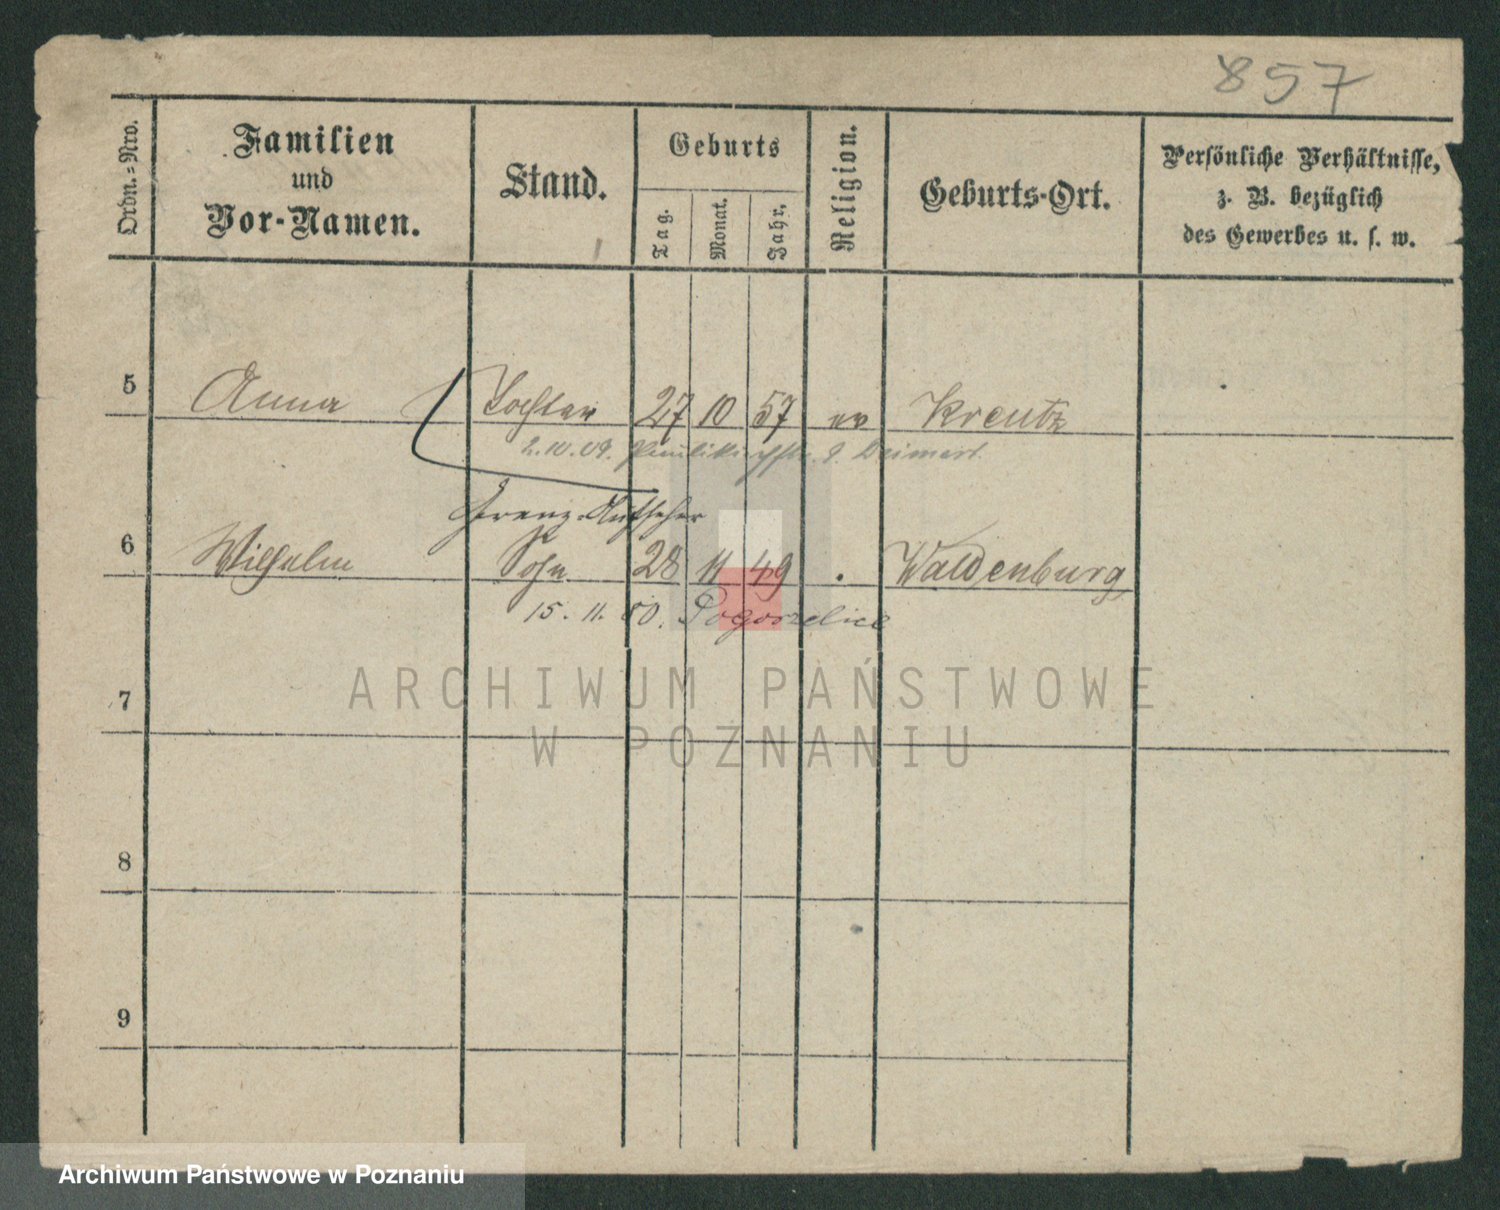 857
Ordn.-Nro.
Familien
und
Vor-Namen.
Stand.
Geburts
Tag.
Monat.
Jahr.
Religion.
Geburts-Ort.
Persönliche Verhältnisse,
z. B. bezüglich
des Gewerbes u. s. w.
5 Anna Tochter 27 10 57 ev Kreutz
2.10.09. Paulikirchstr. 9.
Grenz-Aufseher
6 Wilhelm Sohn 28 11 49 Waldenburg
15. 11. 80. Pogorzelice
ARCHIWUM PAŃSTWOWE
7
W POZNANIU
8
9
Archiwum Państwowe w Poznaniu